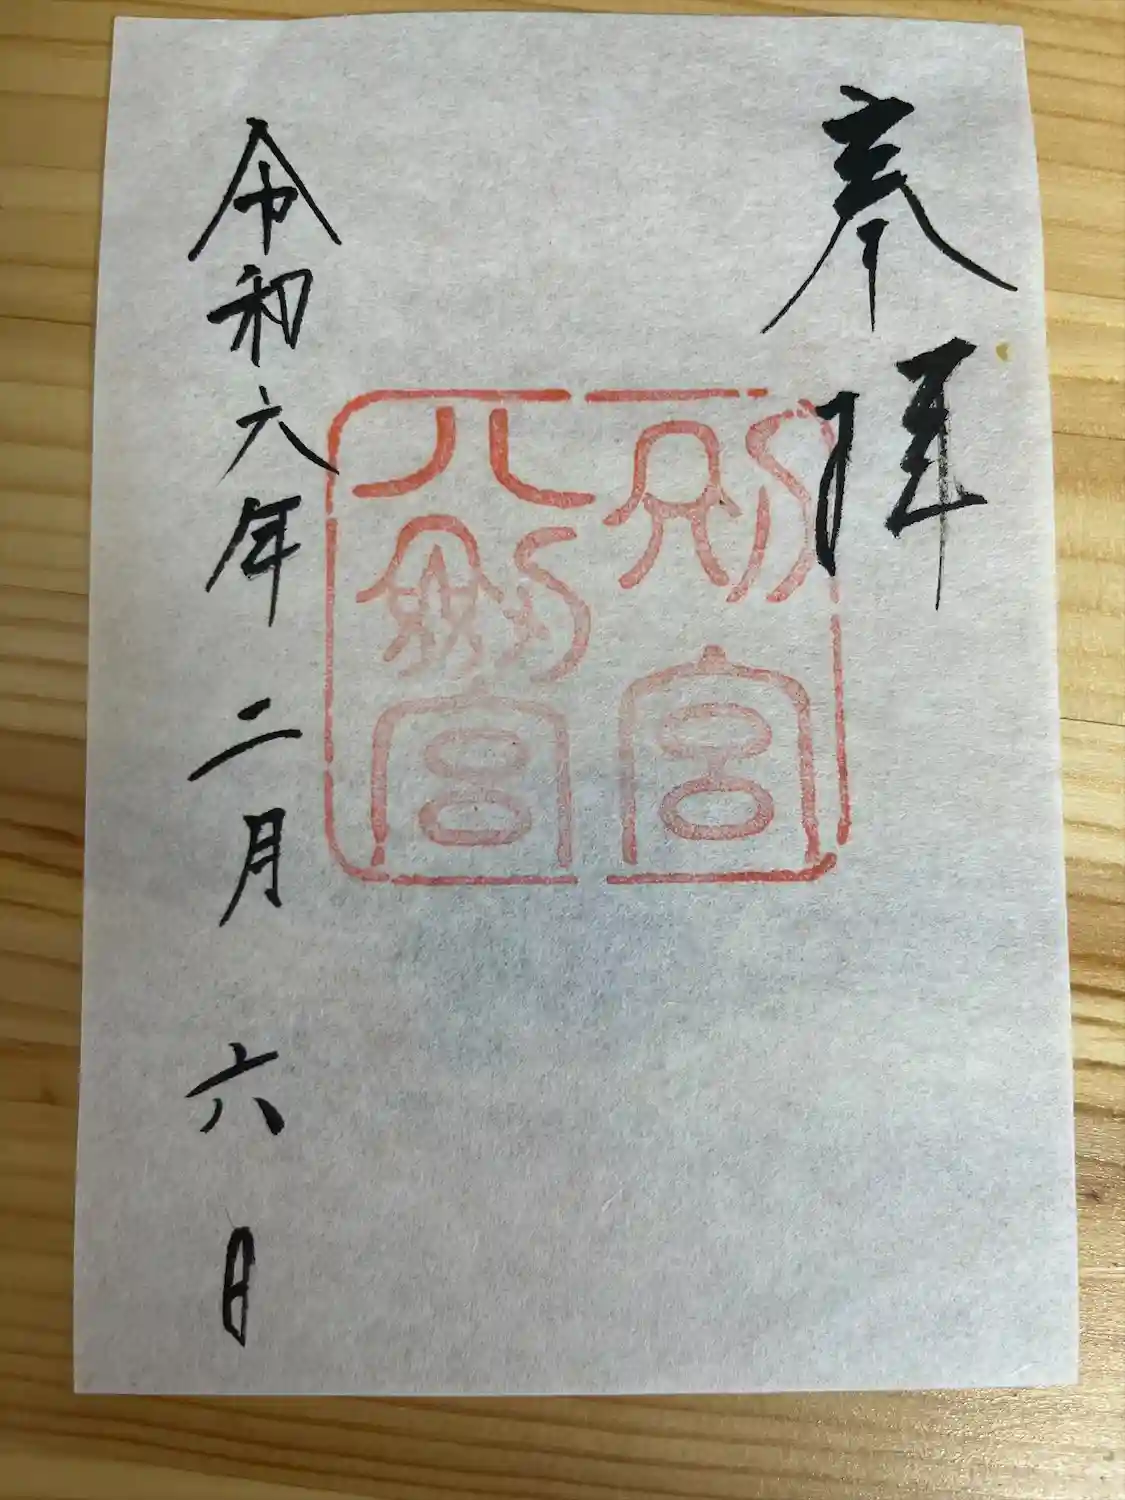 奉拝
別宮
八劔宮
令和六年二月六日